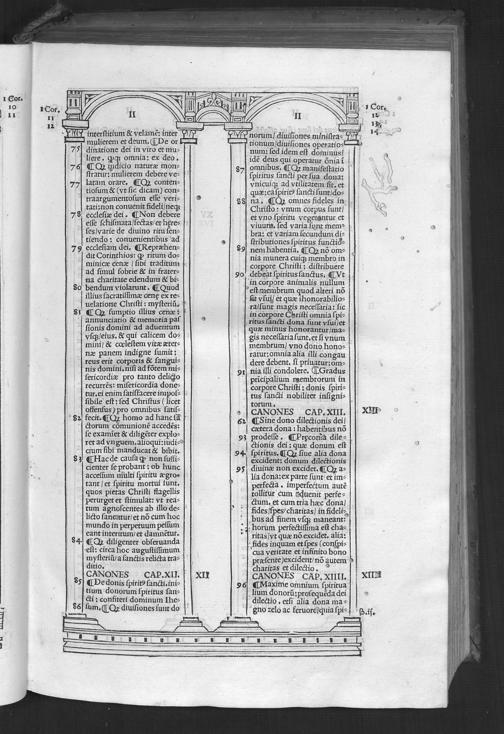 I Cor.
10
11
I Cor.
11
12
II
interstitium & velamē: inter
mulierem et deum. ¶De or
dinatione dei in viro et mu
75 liere. quia omnia: ex deo.
76 ¶Quod iudicio naturæ mon-
stratur: mulierem debere ve-
77 latam orare. ¶Quod conten-
tiosum & (vt sic dicam) con-
traargumentosum esse veri-
tati: non conuenit fideli: neque
78 ecclesiæ dei. ¶Non debere
esse schismata/sectas et hære-
ses/varie de diuino ritu sen-
tiendo: conuenientibus ad
79 ecclesiam dei. ¶Repræhen-
dit Corinthios: quod ritum do-
minicæ cenæ sibi traditum
ad simul sobrie & in frater-
na charitate edendum & bi-
80 bendum violarunt. ¶Quod
illius sacratissimæ cenę ex re-
uelatione Christi: mysteriū.
81 ¶Quod sumptio illius cenæ:
annunciatio & memoria pas
sionis domini ad aduentum
vsque eius, & qui calicem do-
mini & cœlestem vitæ æter-
næ panem indigne sumit:
reus erit corporis & sangui-
nis domini. nisi ad fōtem mi-
sericordiæ pro tanto delicto
recurrēs: misericordia done-
tur. ei enim satisfacere impos
sibile est: sed Christus (licet
offensus) pro omnibus satis-
82 fecit. ¶Quod homo ad hanc sā
ctorum comunionē accedēs:
se examiet & diligiter explo-
ret ad vnguem. alioqui: iudi-
cium sibi manducat & bibit.
83 ¶Hac de causa quod non suffi-
cienter se probant: ob hunc
accessum multi spiritu ægro-
tant/et spiritu mortui sunt.
quos pietas Christi flagellis
perurget et stimulat: vt rea-
tum agnoscentes ab illo de-
licto sanentur/et nō cum hoc
mundo in perpetuum pessum
eant intereant/et damnētur.
84 ¶Quod diligenter obseruanda
est: circa hoc augustissimum
mysteriū/a sanctis relicta tra-
ditio.
CANONES CAP.XII. XII
85 ¶De donis spiritus sancti: ini
tium donorum spiritus san-
cti: confiteri dominum Ihe-
86 sum. ¶Quod diuisiones sunt do
I Cor.
12
13
14
II
norum/diuisiones ministra-
tionum/diuisiones operatio-
num: sed idem est dominus/
idē deus qui operatur ōnia ī
87 omnibus. ¶Quod manifestatio
spiritus sancti per sua dona:
vnicuique ad vtilitatem fit. et
quæ ea spiritus sancti sunt: do-
88 na. ¶Quod omnes fideles in
Christo: vnum corpus sunt/
et vno spiritu vegetantur et
viuunt. sed varia sunt mem-
bra: et variam secundum di-
stributiones spiritus functio-
89 nem habentia. ¶Quod nō om-
nia munera cuique membro in
corpore Christi: distribuere
90 debeat spiritus sanctus. ¶Vt
in corpore animalis nullum
est membrum quod alteri nō
sit vsui/et quæ ihonorabilio-
ra/sunt magis necessaria: sic
in corpore Christi omnia spi-
ritus sancti dona sunt vsui/et
quæ minus honorantur: ma-
gis necessaria sunt. et si vnum
membrum/vno dono hono-
ratur: omnia alia illi congau
dere debent. si priuatur: om-
91 nia illi condolere. ¶Gradus
pricipalium membrorum in
corpore Christi: donis spiri-
tus sancti nobiliter insigni-
torum.
CANONES CAP.XIII. XIII
62 ¶Sine dono dilectionis dei:
cætera dona: habentibus nō
93 prodesse. ¶Precōnia dile-
ctionis dei: quæ donum est
94 spiritus. ¶Quod siue alia dona
excidant: donum dilectionis
95 diuinæ non excidet. ¶Quod a-
lia dona: ex parte sunt et im-
perfecta. imperfectum autē
tollitur cum aduenit perfe-
ctum. et cum tria hæc dona/
fides/spes/charitas/in fidelibus
ad finem vsque maneant:
horum perfectissima est cha-
ritas/vt quæ nō excidet. alias
fides inquam et spes (conspi-
cua veritate et infinito bono
præsente) excident/nō autem
charitas et dilectio.
CANONES CAP.XIIII. XIIII
96 ¶Maxime omnium spiritua
lium donorū: prosequēda dei
dilectio. etsi alia dona ma-
gno zelo ac feruore/quia spi-
B.ii.